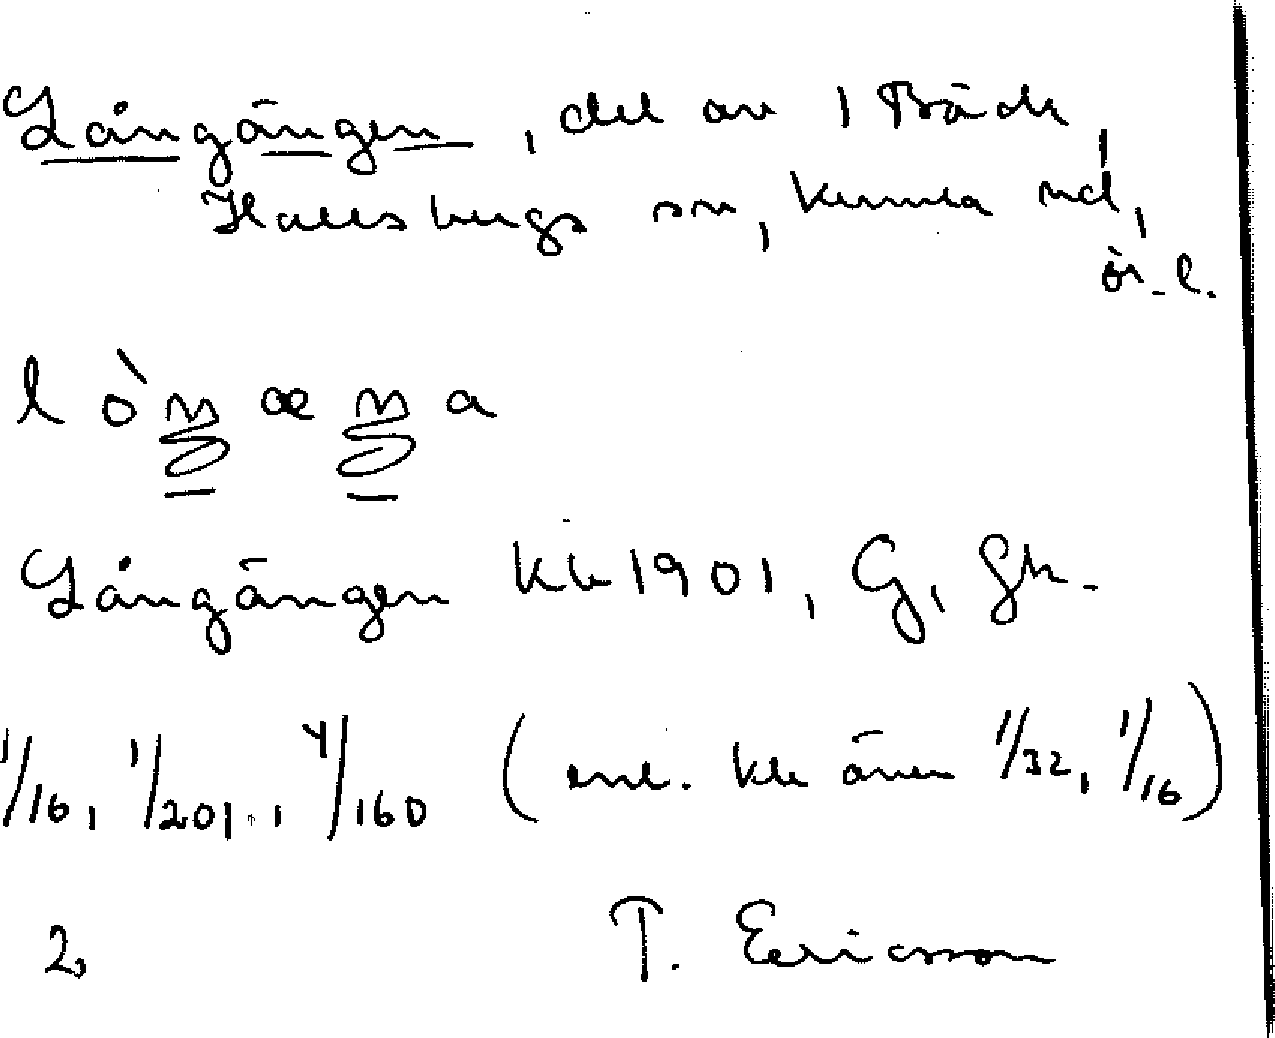 Långängen, del av 1 Bäck,
Hallsbergs sn, Kumla hd,
ör. l.
lòŋæŋa
Långängen kk 1901, G, Gk.
1/16, 1/201, 4/160 (enl. kk även 1/32, 1/16)
2, T. Ericsson